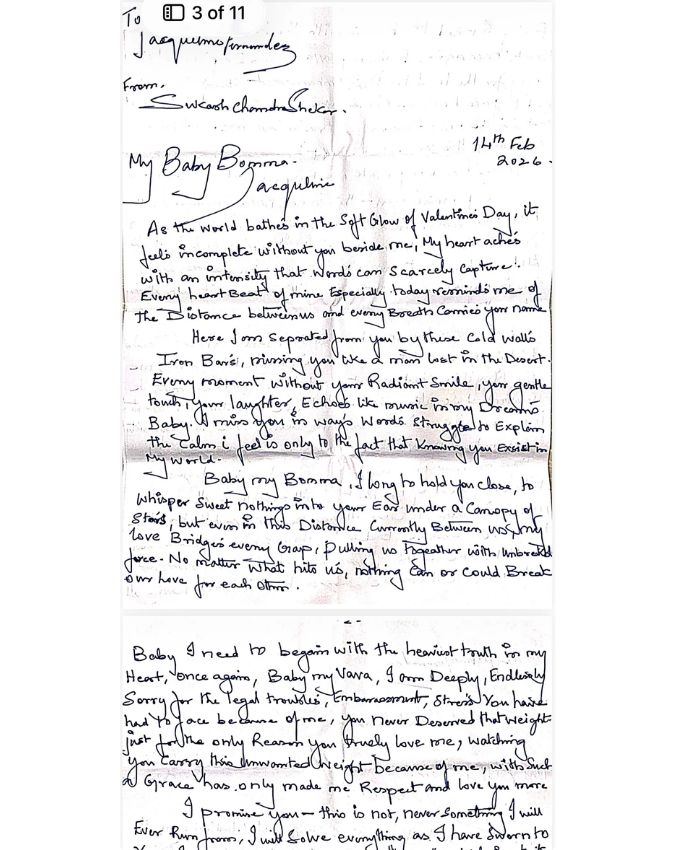 3 of 11
To
Jacqueline Fernandez
From,
Sukash Chandra Shekar.
14th Feb
2026.
My Baby Bomma.
Jacquline
As the World bathes in the Soft Glow of Valentines Day, it
feels incomplete without you beside me, My heart aches
with an intensity that words can Scarcely Capture.
Every heart Beat of mine Especially today reminds me of
the Distance between us and every Breath Carries your name
Here I am Seprated from you by these Cold walls
Iron Bars, missing you like a man lost in the Desert.
Every moment without your Radiant Smile, your gentle
touch, your laughter, Echoes like music in my Dreams
Baby. I miss you in ways Words Struggle to Explain
the Calm i feel is only to the fact that Knowing you Exsist in
My World.
Baby my Bomma, I long to hold you close, to
whisper Sweet nothings into your Ear under a Canopy of
Stars, but even in this Distance Currently Between us, my
love Bridges every Gap, Pulling us together with unbreakd
force. No matter what hits us, nothing Can or could Break
our love for each other.
Baby I need to begain with the heaviest truth in my
Heart, once again, Baby my Vava, I am Deeply, Endlessly
Sorry for the legal troubles, Embarassment, Stress You have
had to face because of me, you never Deserved that weight
just for the only Reason you truely love me, watching
you Carry this unwanted weight because of me, with Such
a Grace has only made me Respect and love you more
I promise you — this is not, never Something I will
Ever Run from, I will Solve everything as I have Sworn to